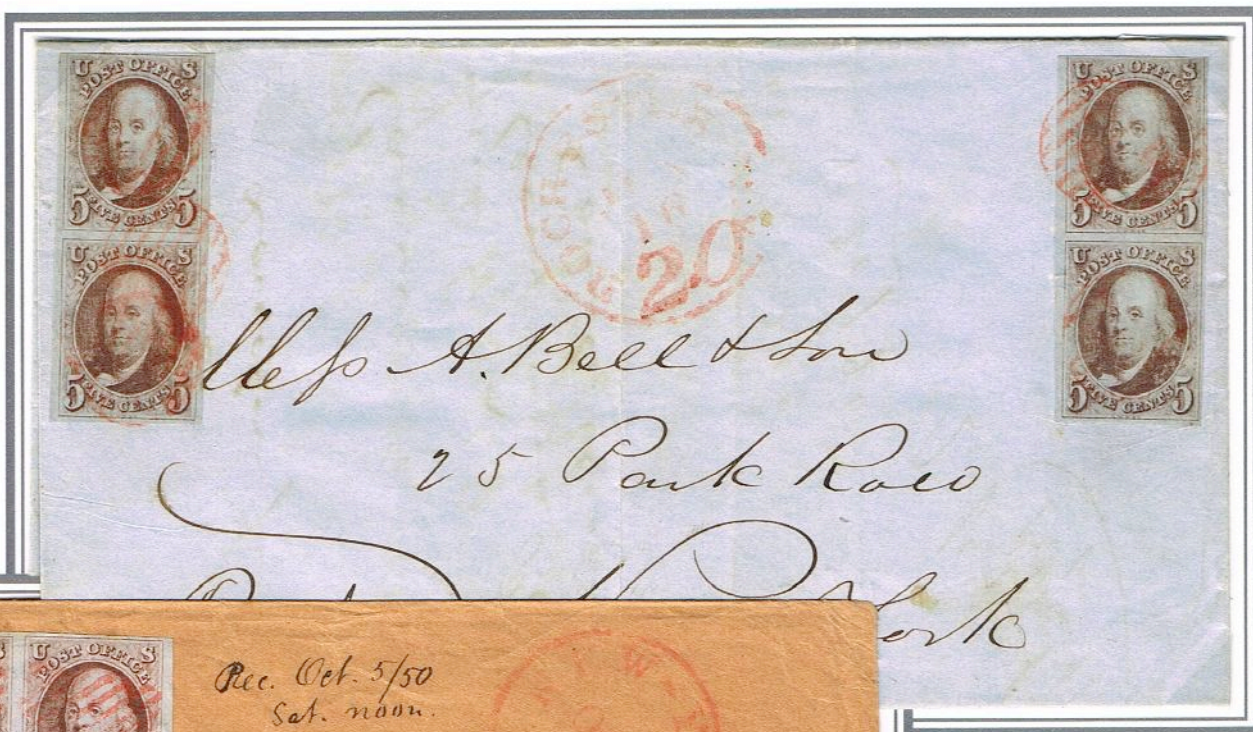 U S
POST OFFICE
5 FIVE CENTS 5
U S
POST OFFICE
5 FIVE CENTS 5
U S
POST OFFICE
5 FIVE CENTS 5
U S
POST OFFICE
5 FIVE CENTS 5
ROCH
20
Mess A. Bell & Son
25 Park Row
York
S
U S
POST OFFICE
Rec. Oct. 5/50
Sat. noon.
NEW